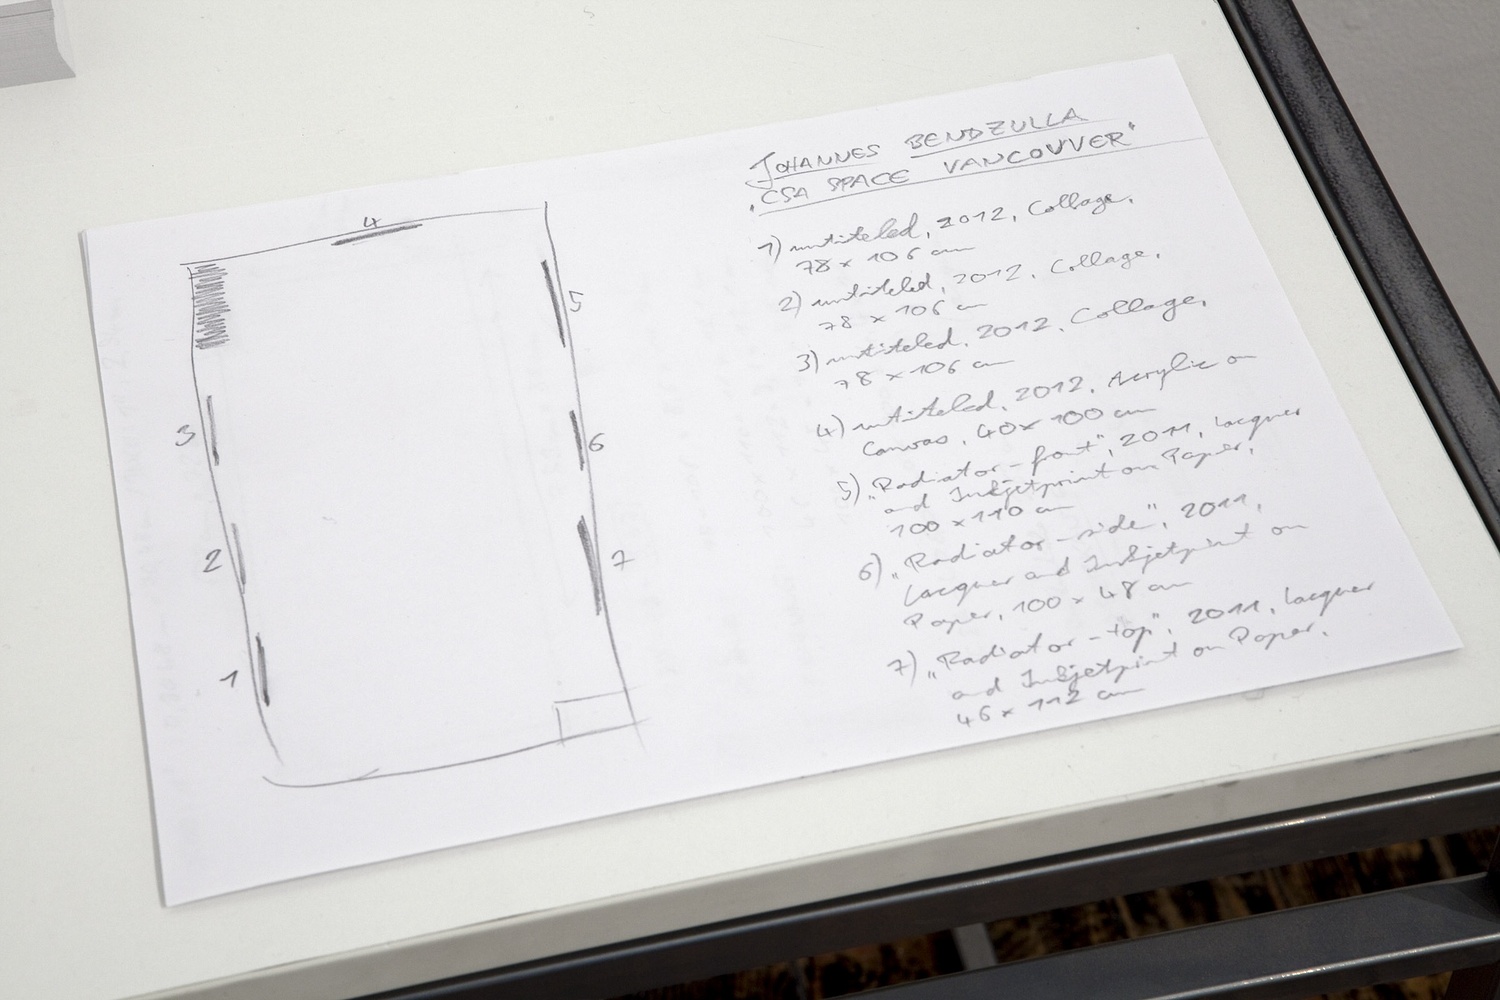 4
5
3
6
2
7
1
JOHANNES BENDZULLA
"CSA SPACE VANCOUVER"
1) untiteled, 2012, Collage,
78 x 106 cm
2) untiteled, 2012, Collage,
78 x 106 cm
3) untiteled, 2012, Collage,
78 x 106 cm
4) untiteled, 2012, Acrylic on
Canvas, 40 x 100 cm
5) „Radiator - front“, 2011, lacquer
and Inkjetprint on Paper,
100 x 110 cm
6) „Radiator - side“, 2011,
Lacquer and Inkjetprint on
Paper, 100 x 48 cm
7) „Radiator - top“, 2011, lacquer
and Inkjetprint on Paper,
46 x 112 cm